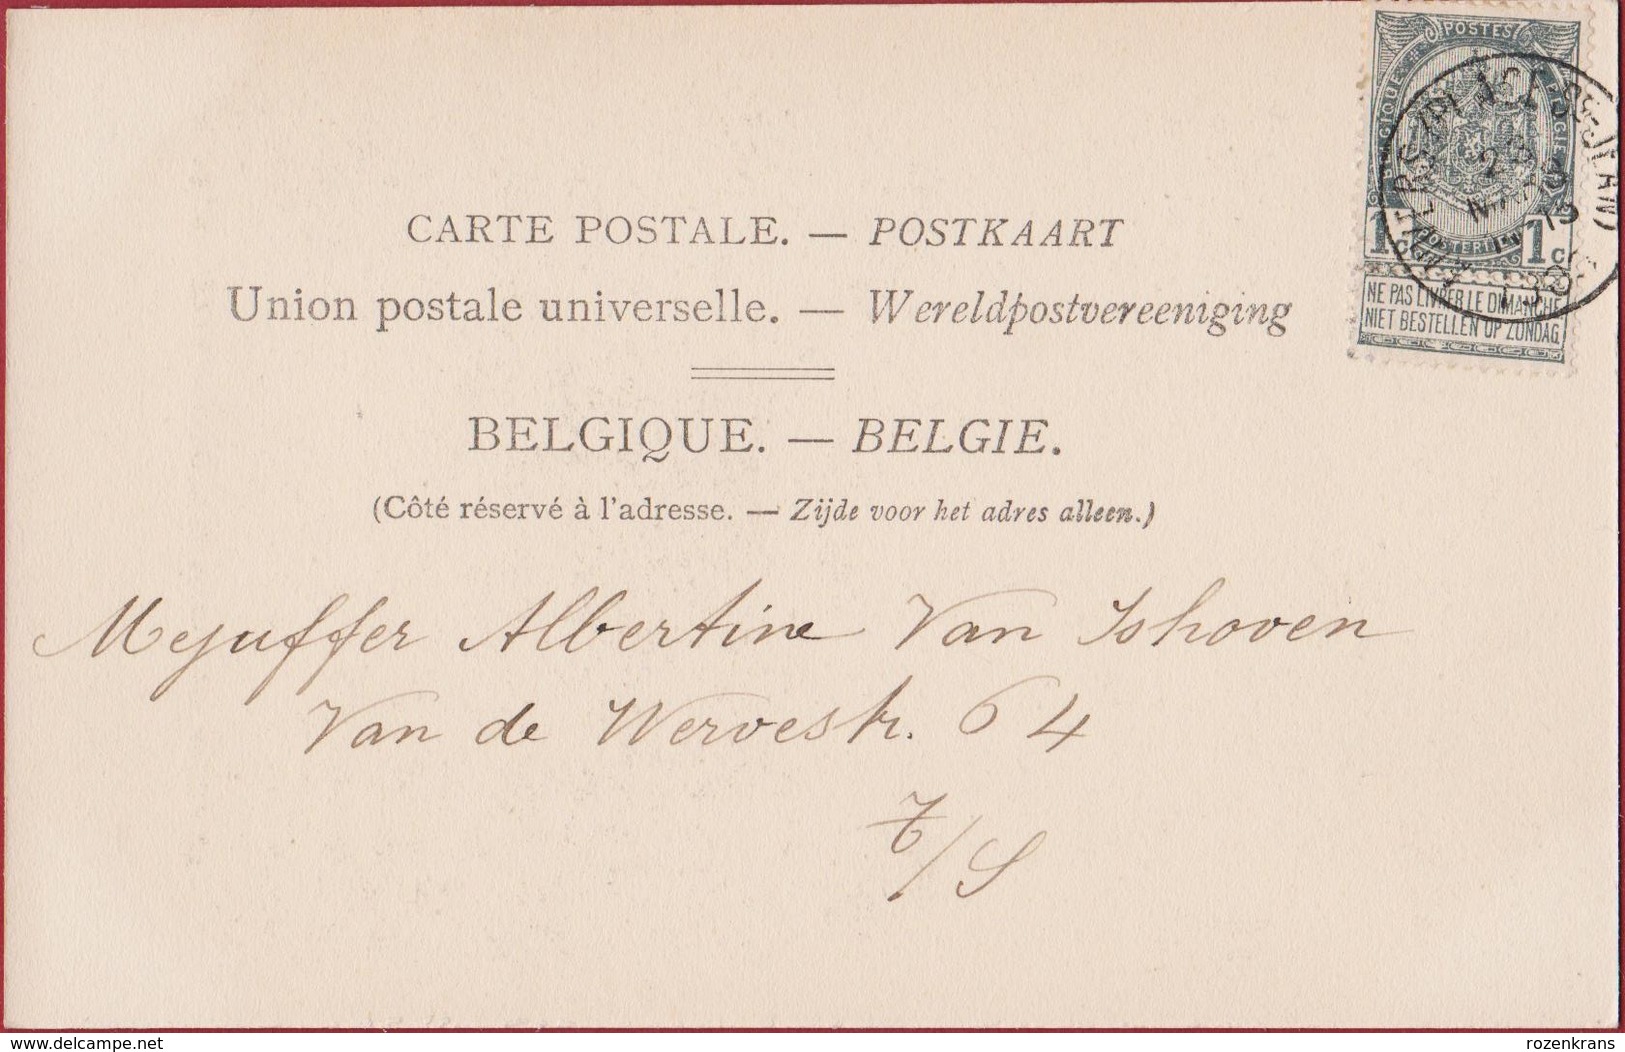 POSTES
BELGIQUE
BELGIE
POSTERIJEN
1c 1c
NE PAS LIVRER LE DIMANCHE
NIET BESTELLEN OP ZONDAG.
CARTE POSTALE. — POSTKAART
Union postale universelle. — Wereldpostvereeniging
BELGIQUE. — BELGIE.
(Côté réservé à l'adresse. — Zijde voor het adres alleen.)
Mejuffer Albertine Van Ishoven
Van de Wervestr. 64
T/S
delcampe.net
rozenkrans